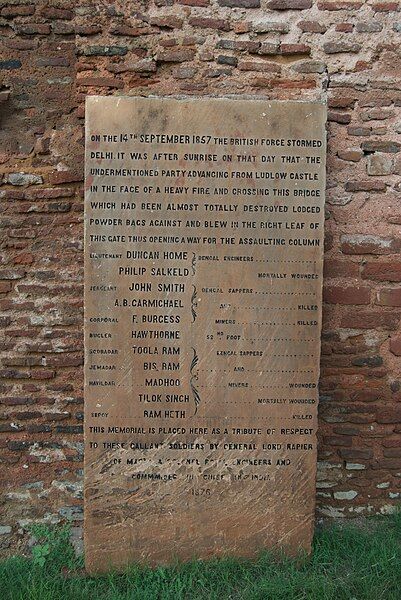 ON THE 14TH SEPTEMBER 1857 THE BRITISH FORCE STORMED
DELHI. IT WAS AFTER SUNRISE ON THAT DAY THAT THE
UNDERMENTIONED PARTY ADVANCING FROM LUDLOW CASTLE
IN THE FACE OF A HEAVY FIRE AND CROSSING THIS BRIDGE
WHICH HAD BEEN ALMOST TOTALLY DESTROYED LODGED
POWDER BAGS AGAINST AND BLEW IN THE RIGHT LEAF OF
THIS GATE THUS OPENING A WAY FOR THE ASSAULTING COLUMN
LIEUTENANT DUNCAN HOME BENGAL ENGINEERS
PHILIP SALKELD MORTALLY WOUNDED
SERGEANT JOHN SMITH BENGAL SAPPERS
A.B. CARMICHAEL AND KILLED
CORPORAL F. BURGESS MINERS KILLED
BUGLER HAWTHORNE 52ND FOOT
SOOBADAR TOOLA RAM BENGAL SAPPERS
JEMADAR BIS RAM AND
HAVILDAR MADHOO MINERS WOUNDED
TILOK SINGH MORTALLY WOUNDED
SEPOY RAM HETH KILLED
THIS MEMORIAL IS PLACED HERE AS A TRIBUTE OF RESPECT
TO THESE GALLANT SOLDIERS BY GENERAL LORD NAPIER
OF COLONEL ROYAL ENGINEERS AND
IN CHIEF IN INDIA
1876